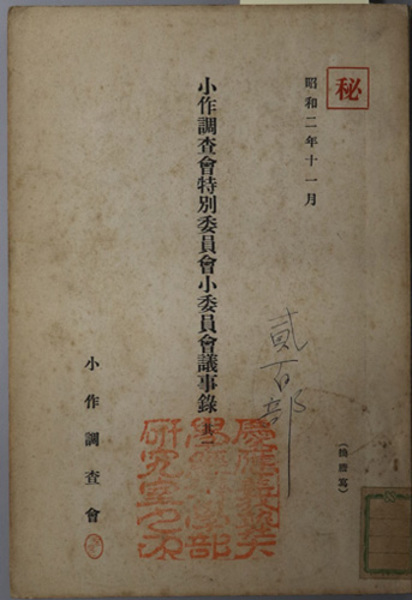 秘
昭和二年十一月
小作調査會特別委員會小委員會議事錄 其二
貳百部
(換謄寫)
小作調査會
慶應義塾大
學經濟學部
研究室之印